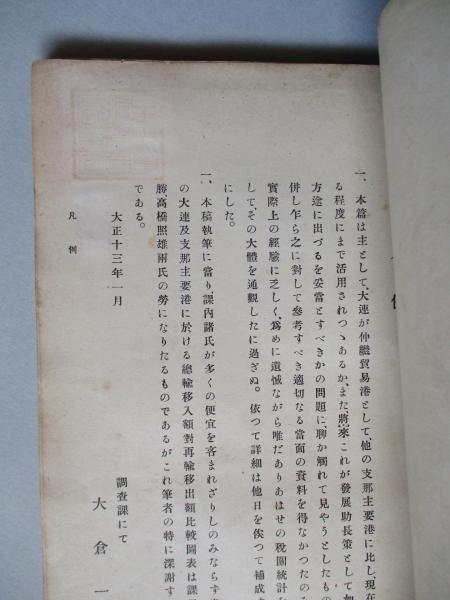 一、本篇は主として、大連が仲繼貿易港として、他の支那主要港に比し、現在
る程度にまで活用されつゝあるか、また、將來これが發展助長策として如
方途に出づるを妥當とすべきかの問題に、聊か觸れて見やうとしたもの
併し乍ら之に對して參考すべき適切なる當面の資料を得なかつたのみ
實際上の經驗に乏しく、爲めに遺憾ながら唯だありあはせの税關統計を
して、その大體を通觀したに過ぎぬ。依つて詳細は他日を俟つて補成す
にした。
一、本稿執筆に當り、課內諸氏が多くの便宜を吝まれざりしのみならず
の大連及支那主要港に於ける總輸移入額對再輸移出額比較圖表は課
勝高橋照雄兩氏の勞になりたるものであるがこれ筆者の特に深謝す
である。
大正十三年一月
調査課にて
大倉一
凡例